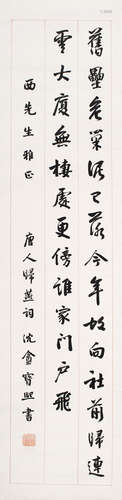 舊壘危巢泥已落今年故向社前歸連
雲大廈無棲處更傍誰家門戶飛
西先生雅正
唐人歸燕詞沈盦寶熙書